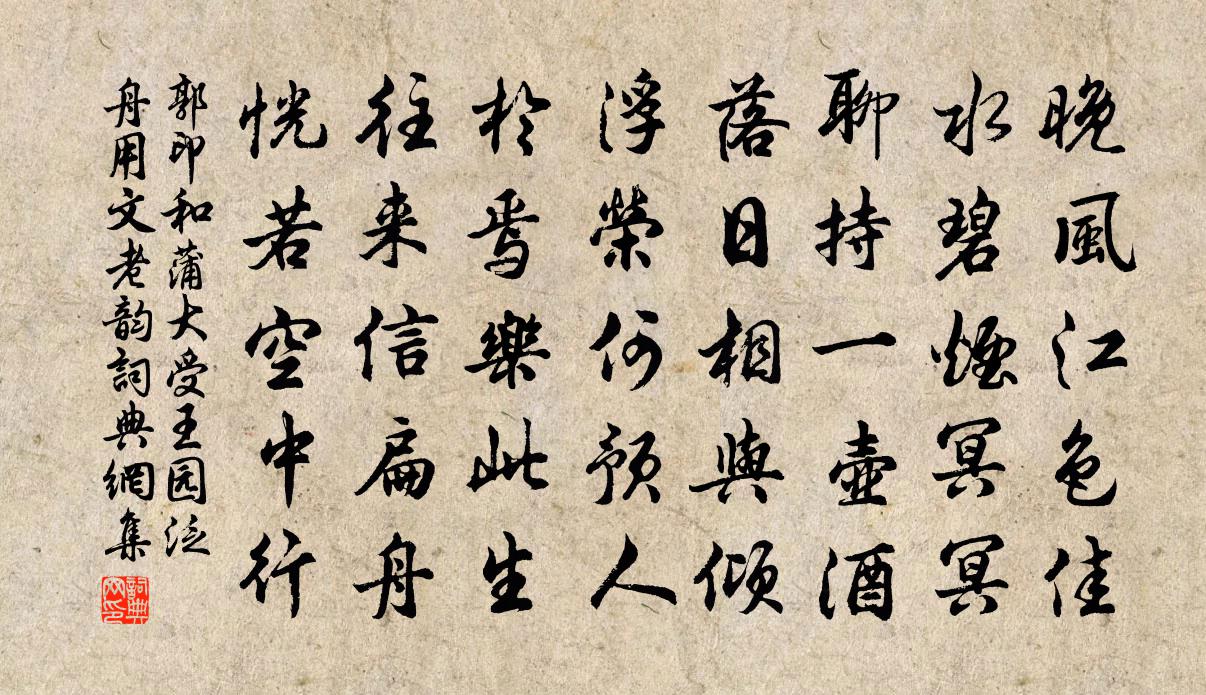 晚風江色佳
水碧煙冥冥
聊持一壺酒
落日相與傾
浮榮何預人
於焉樂此生
往来信扁舟
恍若空中行
郭印和蒲大受王园泛
舟用文老韵詞典網集
詞典網印